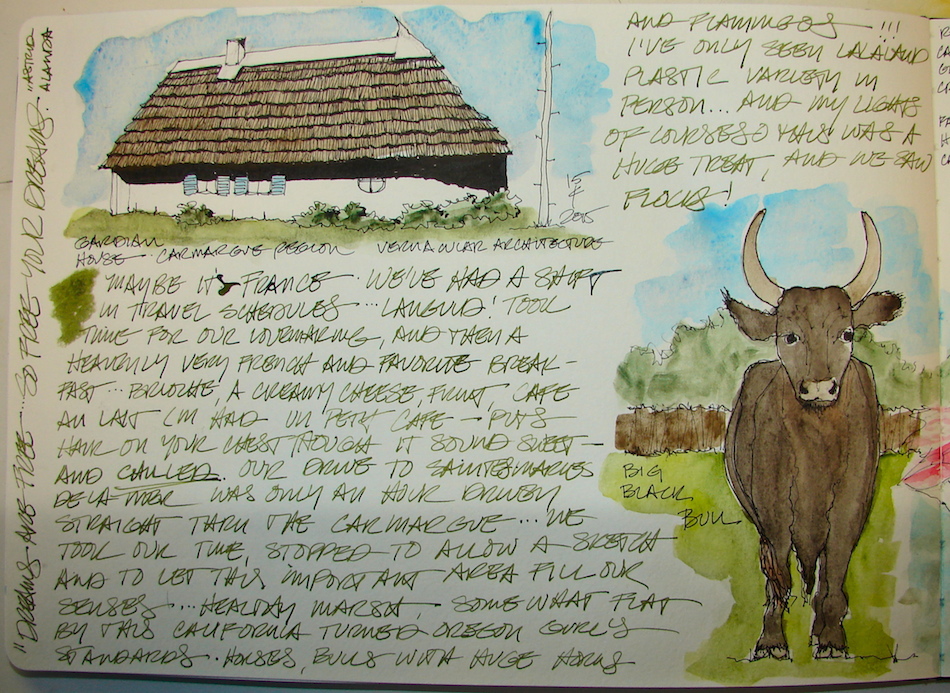 "DREAMS ARE FREE... SO FREE YOUR DREAMS." ASTRID ALAUDA
GARDIAN
HOUSE · CARMARGUE REGION VERNACULAR ARCHITECTURE
2015
MAYBE IT'S FRANCE · WE'VE HAD A SHIFT
IN TRAVEL SCHEDULES ... TOOK
TIME FOR OUR LOVEMAKING, AND THEN A
HEAVENLY VERY FRENCH AND FAVORITE BREAK-
FAST ... BRIOCHE, A CREAMY CHEESE, FRUIT, CAFE
AU LAIT I'M HAD UN PETIT CAFE - PUTS
HAIR ON YOUR CHEST THOUGH IT SOUND SWEET -
AND. OUR DRIVE TO SAINTES MARIES
DE LA MER WAS ONLY AN HOUR DRIVEN
STRAIGHT THRU THE CARMARGUE ... WE
TOOK OUR TIME, STOPPED TO ALLOW A SKETCH
AND TO LET THIS IMPORTANT AREA FILL OUR
SENSES ... HEALTHY MARSH · SOMEWHAT FLAT
BY THIS CALIFORNIA TURNED OREGON GURL'S
STANDARDS · HORSES, BULLS WITH HUGE HORNS
AND FLAMINGOS !!!
I'VE ONLY SEEN LALALAND
PLASTIC VARIETY IN
PERSON... AND MY LIGHTS
OF COURSE THIS WAS A
HUGE TREAT, AND WE SAW
FLOCKS!
BIG
BLACK
BULL